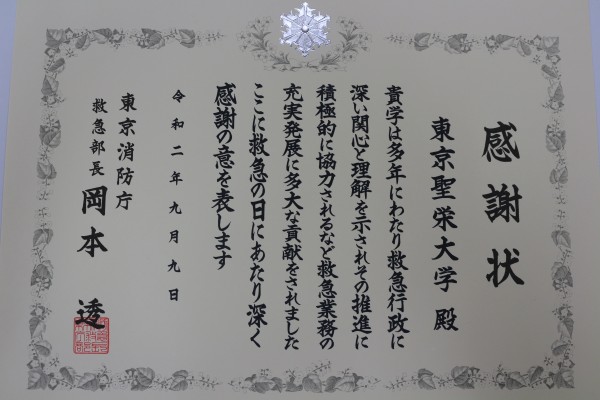 感謝状
東京聖栄大学 殿
貴学は多年にわたり救急行政に
深い関心と理解を示されその推進に
積極的に協力されるなど救急業務の
充実発展に多大な貢献をされました
ここに救急の日にあたり深く
感謝の意を表します
令和二年九月九日
東京消防庁
救急部長 岡本 透